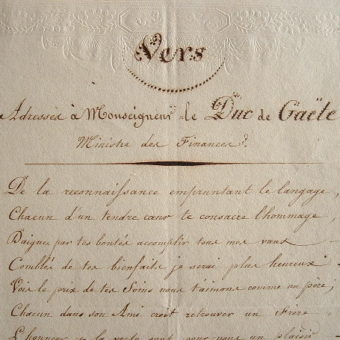 Vers
Adressés à Monseigneur le Duc de Gaëte
Ministre des Finances.
De la reconnaissance empruntant le langage,
Chacun d'un tendre cœur le consacre l'hommage,
Daignez par tes bontés accomplir tous mes vœux
Comblés de tes bienfaits je serai plus heureux
Vois le prix de tes Soins nous t'aimons comme un père,
Chacun dans son Ami croit retrouver un Frère
L'honneur